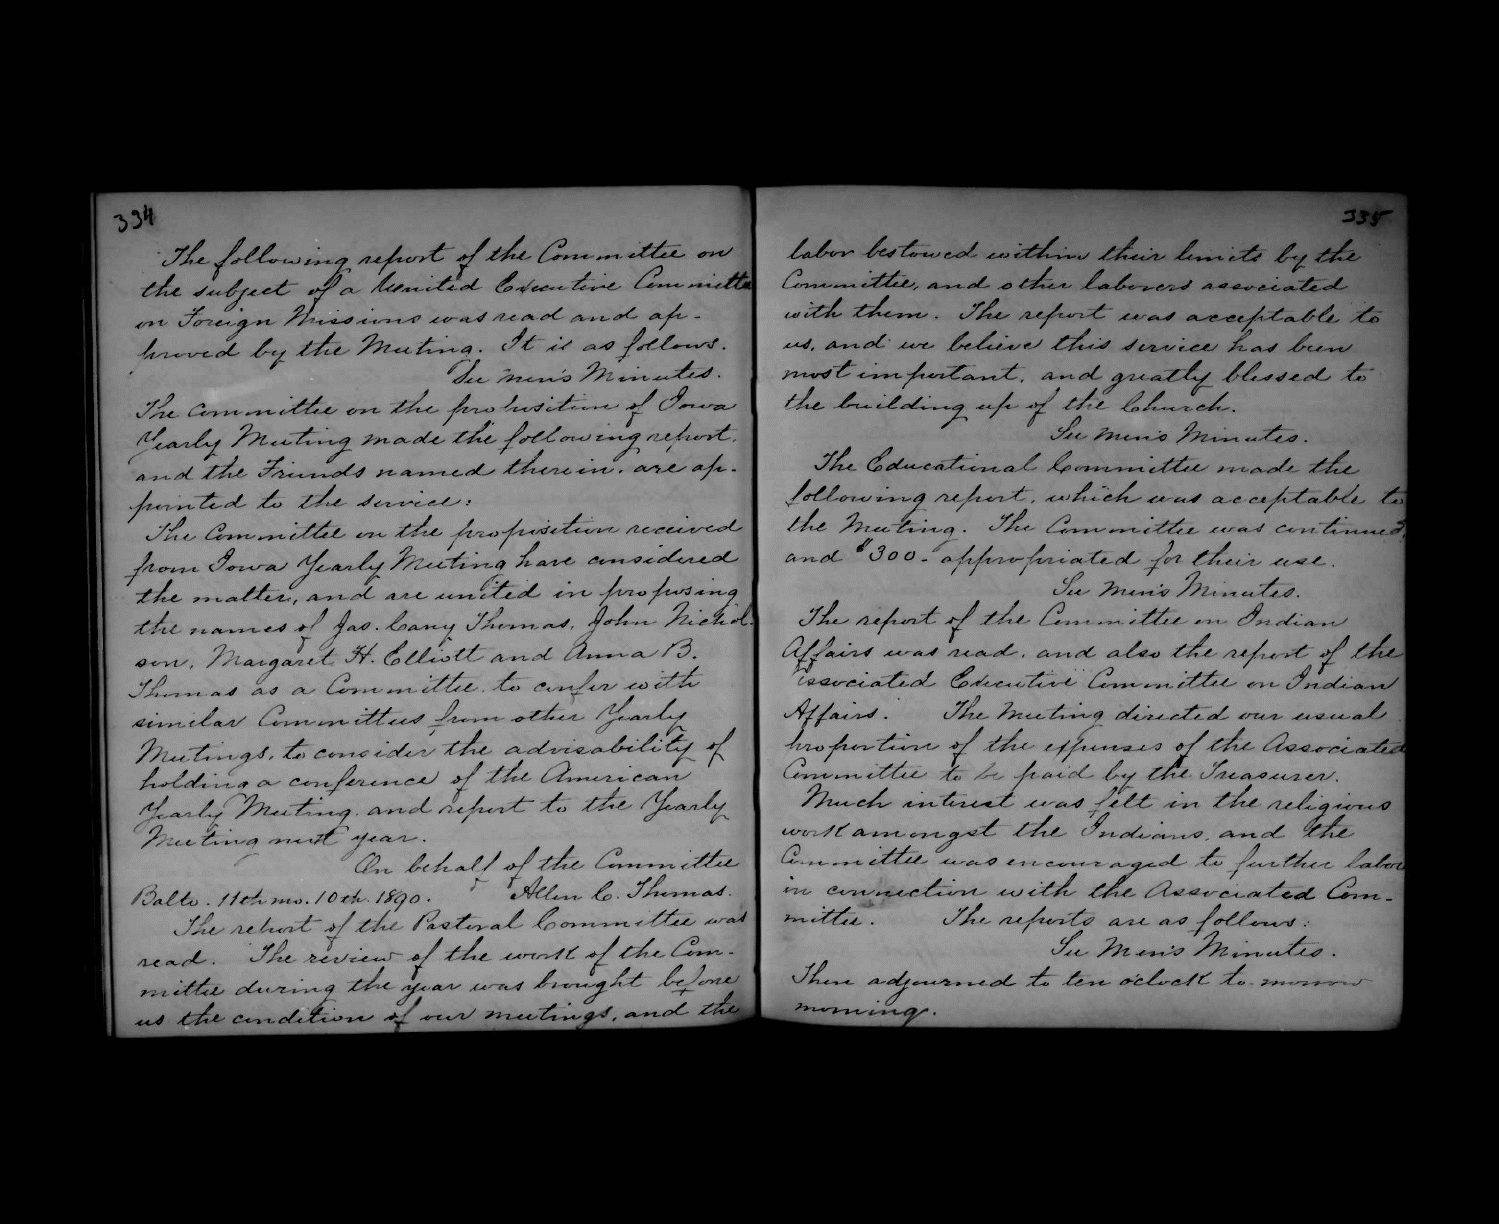 334
The following report of the Committee on
the subject of a United Executive Committee
on Foreign Missions was read and ap-
proved by the Meeting. It is as follows.
See men's Minutes.
The Committee on the proposition of Iowa
Yearly Meeting made the following report,
and the Friends named therein, are ap-
pointed to the service:
The Committee on the proposition received
from Iowa Yearly Meeting have considered
the matter, and are united in proposing
the names of Jas. Carey Thomas, John Nichol-
son, Margaret H. Elliott and Anna B.
Thomas as a Committee to confer with
similar Committees from other Yearly
Meetings, to consider the advisability of
holding a conference of the American
Yearly Meeting and report to the Yearly
Meeting next year.
On behalf of the Committee
Balto. 11th mo. 10th. 1890. Allen C. Thomas.
The report of the Pastoral Committee was
read. The review of the work of the Com-
mittee during the year was brought before
us the condition of our meetings, and the
335
labor bestowed within their limits by the
Committee, and other laborers associated
with them. The report was acceptable to
us, and we believe this service has been
most important, and greatly blessed to
the building up of the Church.
See Men's Minutes.
The Educational Committee made the
following report, which was acceptable to
the Meeting. The Committee was continued,
and $300.- appropriated for their use.
See Men's Minutes.
The report of the Committee on Indian
Affairs was read, and also the report of the
Associated Executive Committee on Indian
Affairs. The Meeting directed our usual
proportion of the expenses of the Associated
Committee to be paid by the Treasurer.
Much interest was felt in the religious
work amongst the Indians, and the
Committee was encouraged to further labor
in connection with the Associated Com-
mittee. The reports are as follows:
See Men's Minutes.
Then adjourned to ten o'clock to-morrow
morning.